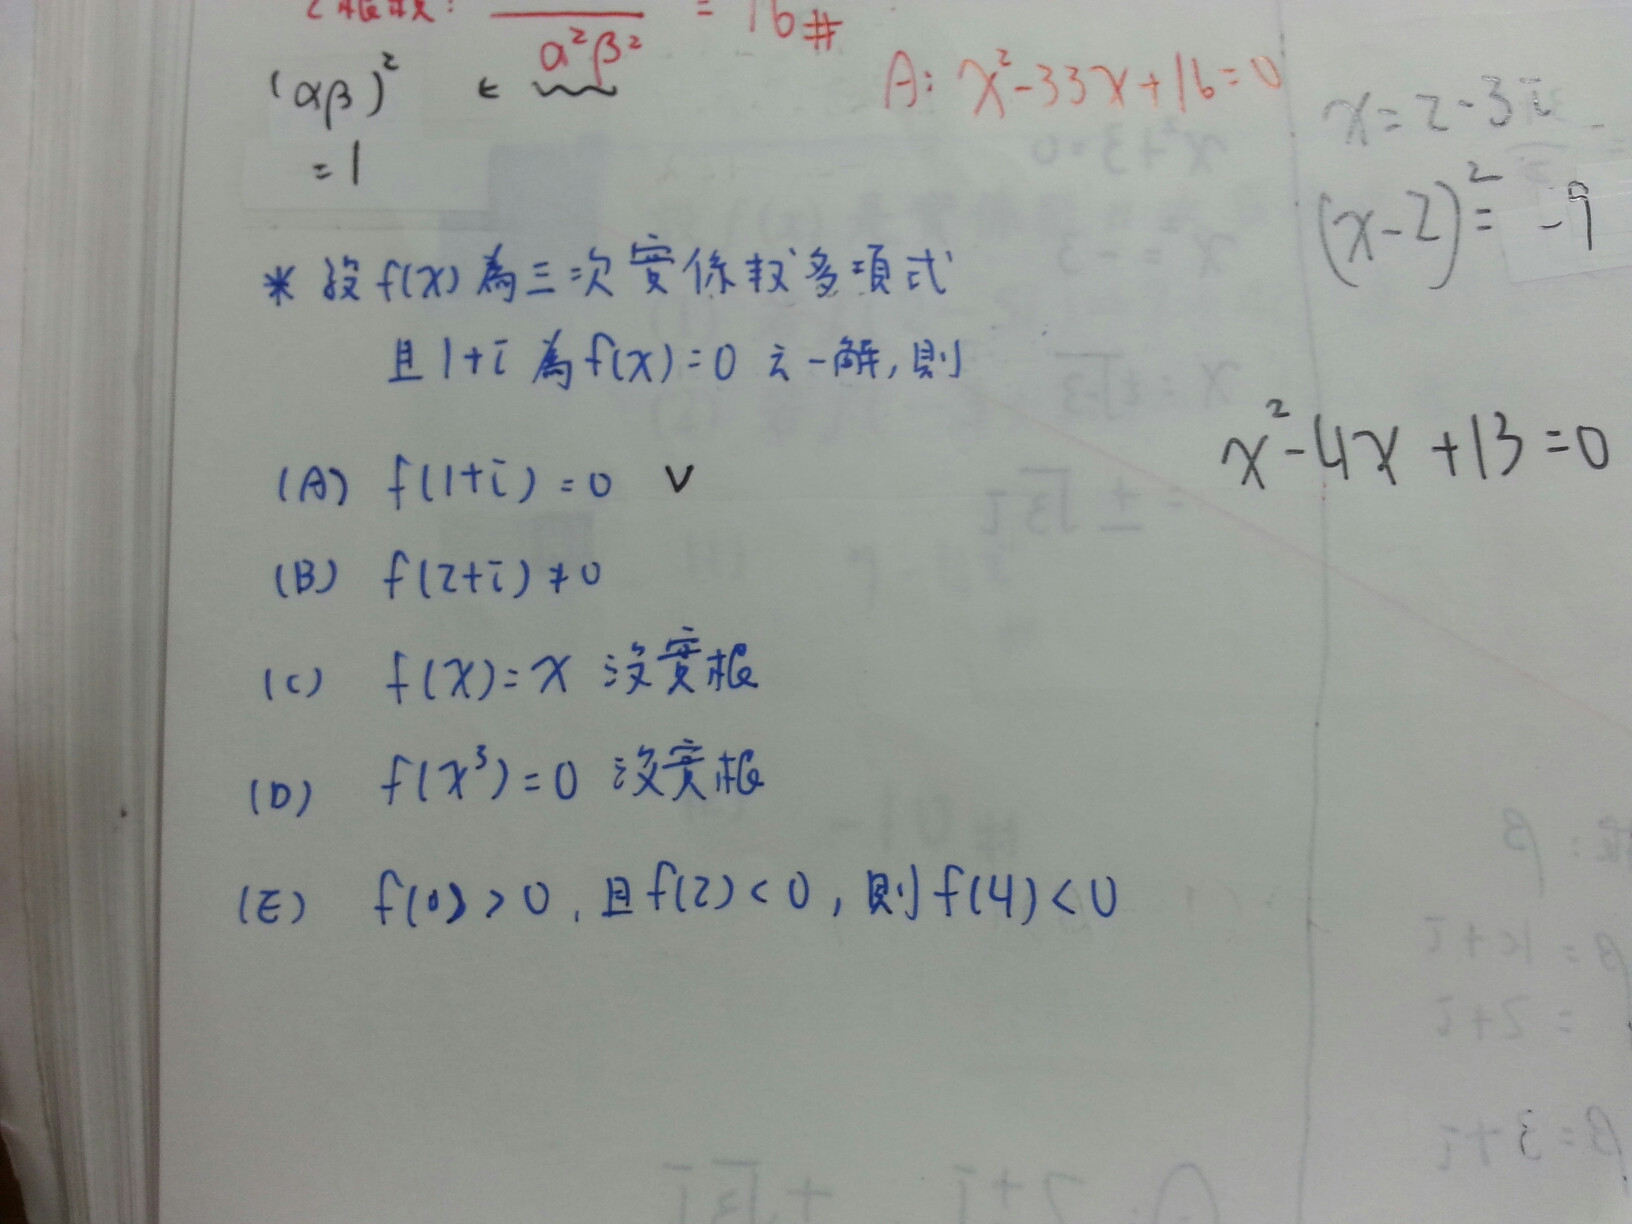 α²β² = 16#
(αβ)² ←
= 1
A: x²-33x+16=0
x=2-3i
(x-2)² = -9
x²-4x+13=0
* 設f(x)為三次實係數多項式
且1+i 為f(x)=0 之一解,則
(A) f(1+i)=0 ∨
(B) f(2+i)≠0
(C) f(x)=x 沒實根
(D) f(x³)=0 沒實根
(E) f(0)>0,且f(2)<0,則f(4)<0